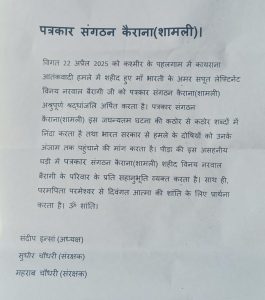 पत्रकार संगठन कैराना(शामली)।
विगत 22 अप्रैल 2025 को कश्मीर के पहलगाम में कायराना
आतंकवादी हमले में शहीद हुए माँ भारती के अमर सपूत लेफ्टिनेंट
विनय नरवाल बैरागी जी को पत्रकार संगठन कैराना(शामली)
अश्रुपूर्ण श्रद्धांजलि अर्पित करता है। पत्रकार संगठन
कैराना(शामली) इस जघन्यतम घटना की कठोर से कठोर शब्दों में
निंदा करता है तथा भारत सरकार से हमले के दोषियों को उनके
अंजाम तक पहुंचाने की मांग करता है। पीड़ा की इस असहनीय
घड़ी में पत्रकार संगठन कैराना(शामली) शहीद विनय नरवाल
बैरागी के परिवार के प्रति सहानुभूति व्यक्त करता है। साथ ही,
परमपिता परमेश्वर से दिवंगत आत्मा की शांति के लिए प्रार्थना
करता है। ॐ शांति।
संदीप इन्सां (अध्यक्ष)
सुधीर चौधरी (संरक्षक)
महराब चौधरी (संरक्षक)